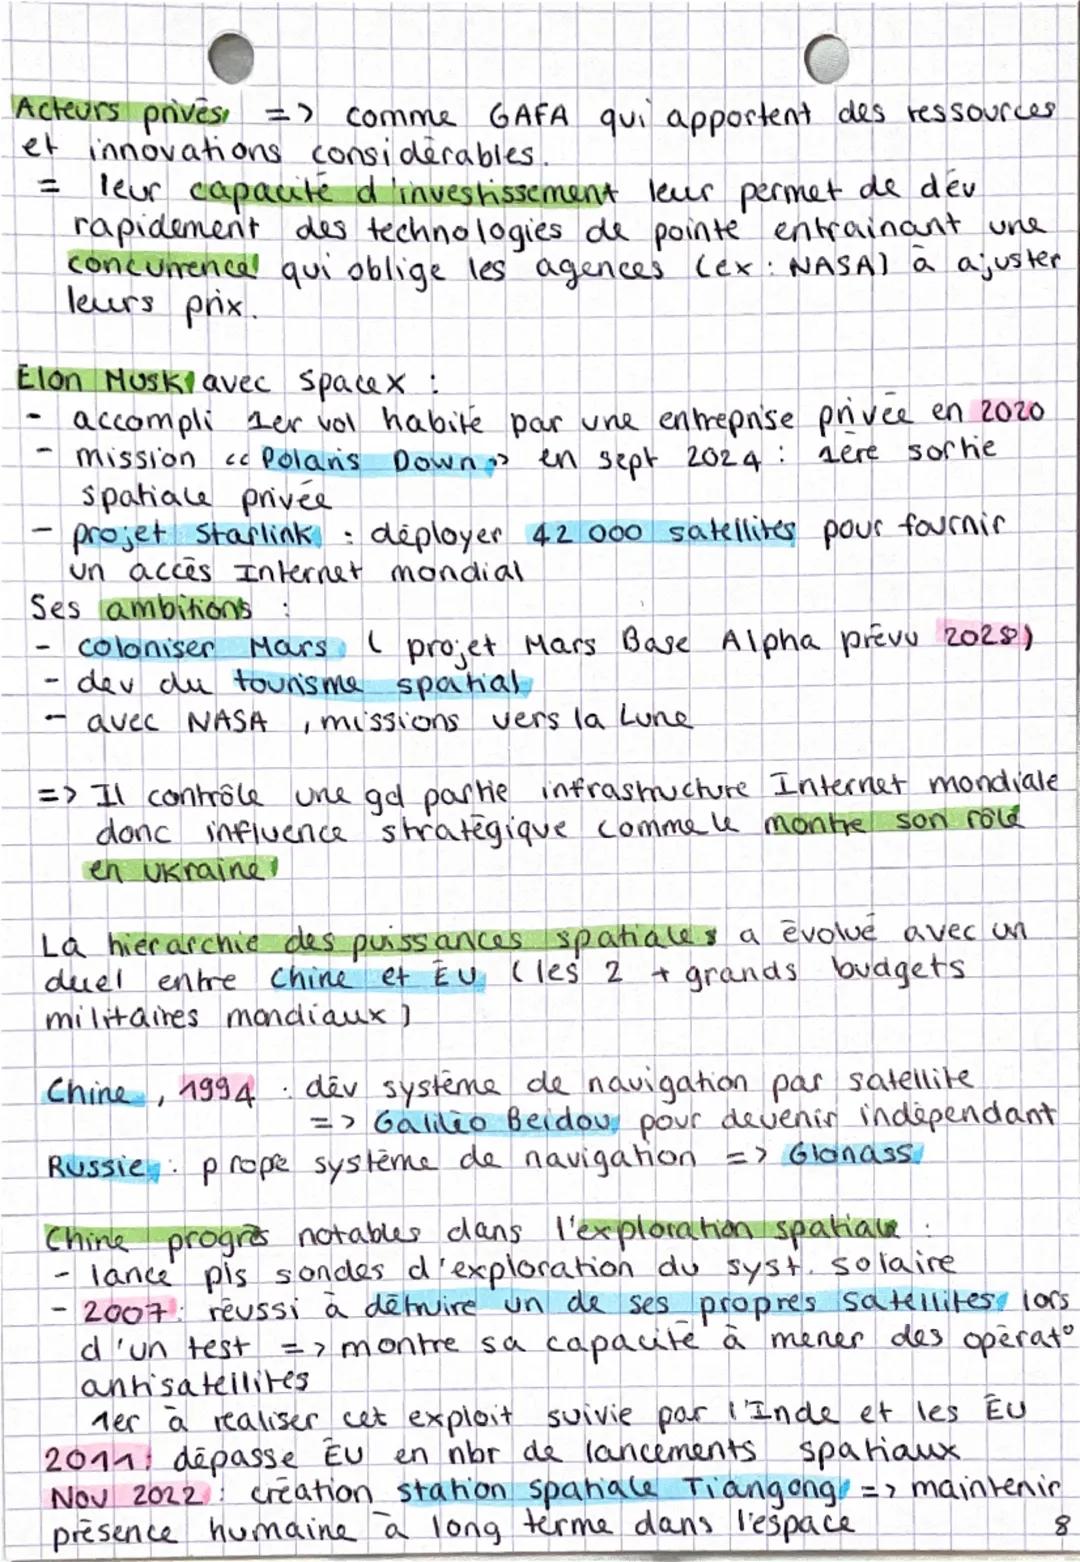 Acteurs privés => comme GAFA qui apportent des ressources
et innovations considérables.
= leur capacité d'investissement leur permet de dév
rapidement des technologies de pointe entrainant une
concurrence qui oblige les agences (ex : NASA) à ajuster
leurs prix.
Elon Musk avec SpaceX :
- accompli 1er vol habité par une entreprise privée en 2020
- mission << Polaris Down >> en sept 2024 : 1ère sortie
spatiale privée
- projet Starlink : déployer 42 000 satellites pour fournir
un accès Internet mondial
Ses ambitions :
- coloniser Mars ( projet Mars Base Alpha prévu 2028)
- dev du tourisme spatial
- avec NASA , missions vers la Lune
=> Il contrôle une gd partie infrastructure Internet mondiale
donc influence stratégique comme le montre son rôle
en Ukraine
La hiérarchie des puissances spatiales a évolué avec un
duel entre Chine et ÉU (les 2 + grands budgets
militaires mondiaux)
Chine , 1994 : dév système de navigation par satellite
=> Galiléo Beidou pour devenir indépendant
Russie : prope système de navigation => Glonass
Chine progrès notables dans l'exploration spatiale :
- lance pls sondes d'exploration du syst. solaire
- 2007 : réussi à détruire un de ses propres satellites lors
d'un test => montre sa capacité à mener des opérat°
antisatellites
1er à réaliser cet exploit suivie par l'Inde et les ÉU
2011 : dépasse ÉU en nbr de lancements spatiaux
Nov 2022 : création station spatiale Tiangong => maintenir
présence humaine à long terme dans l'espace
8